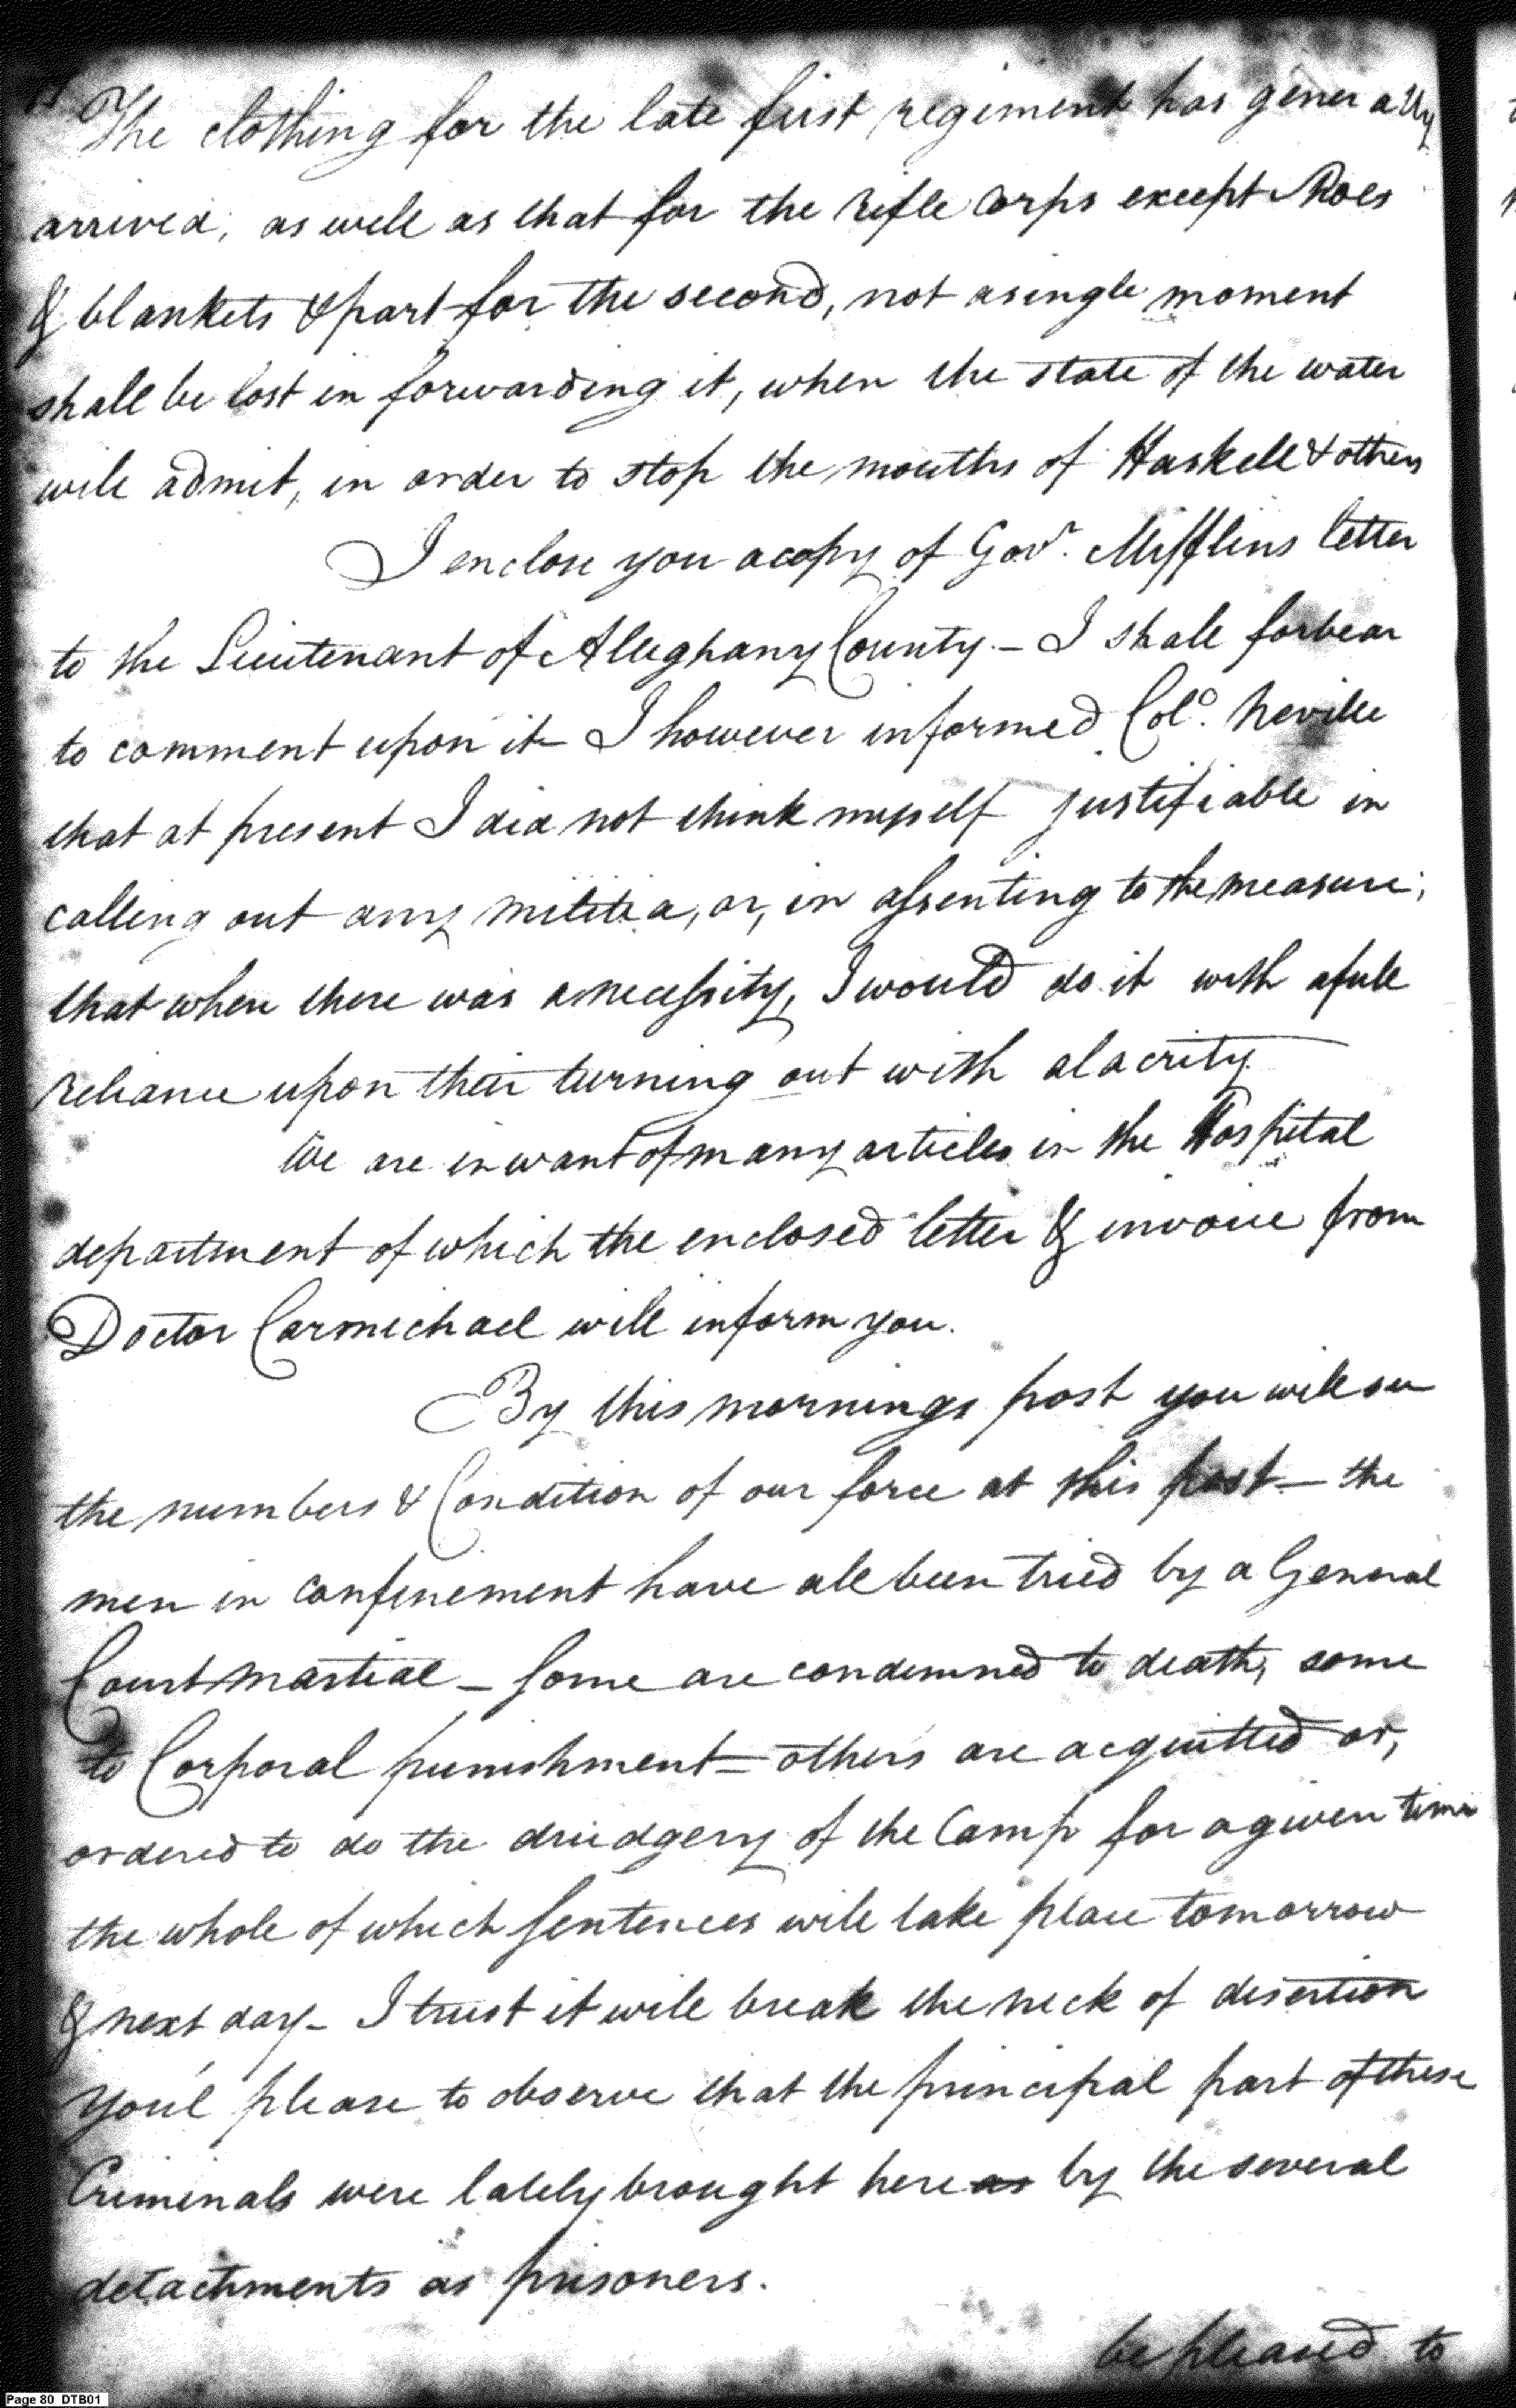 The clothing for the late first regiment has generally
arrived, as well as that for the rifle Corps except Shoes
& blankets & part for the second, not a single moment
shall be lost in forwarding it, when the state of the water
will admit, in order to stop the mouths of Haskell & others
I enclose you a copy of Govr. Mifflins letter
to the Lieutenant of Alleghany County - I shall forbear
to comment upon it - I however informed Colo. Neville
that at present I did not think myself justifiable in
calling out any militia, or, in assenting to the measure;
that when there was a necessity, I would do it with a full
reliance upon their turning out with alacrity.
We are in want of many articles in the Hospital
department of which the enclosed letter & invoice from
Doctor Carmichael will inform you.
By this mornings post you will see
the numbers & Condition of our force at this post - the
men in confinement have all been tried by a General
Court martial - Some are condemned to death, some
to Corporal punishment - others are acquitted or,
ordered to do the drudgery of the Camp for a given time
the whole of which Sentences will take place tomorrow
& next day - I trust it will break the neck of disertion
You'l please to observe that the principal part of these
Criminals were lately brought here as by the several
detachments as prisoners.
be pleased to
Page 80 DTB01